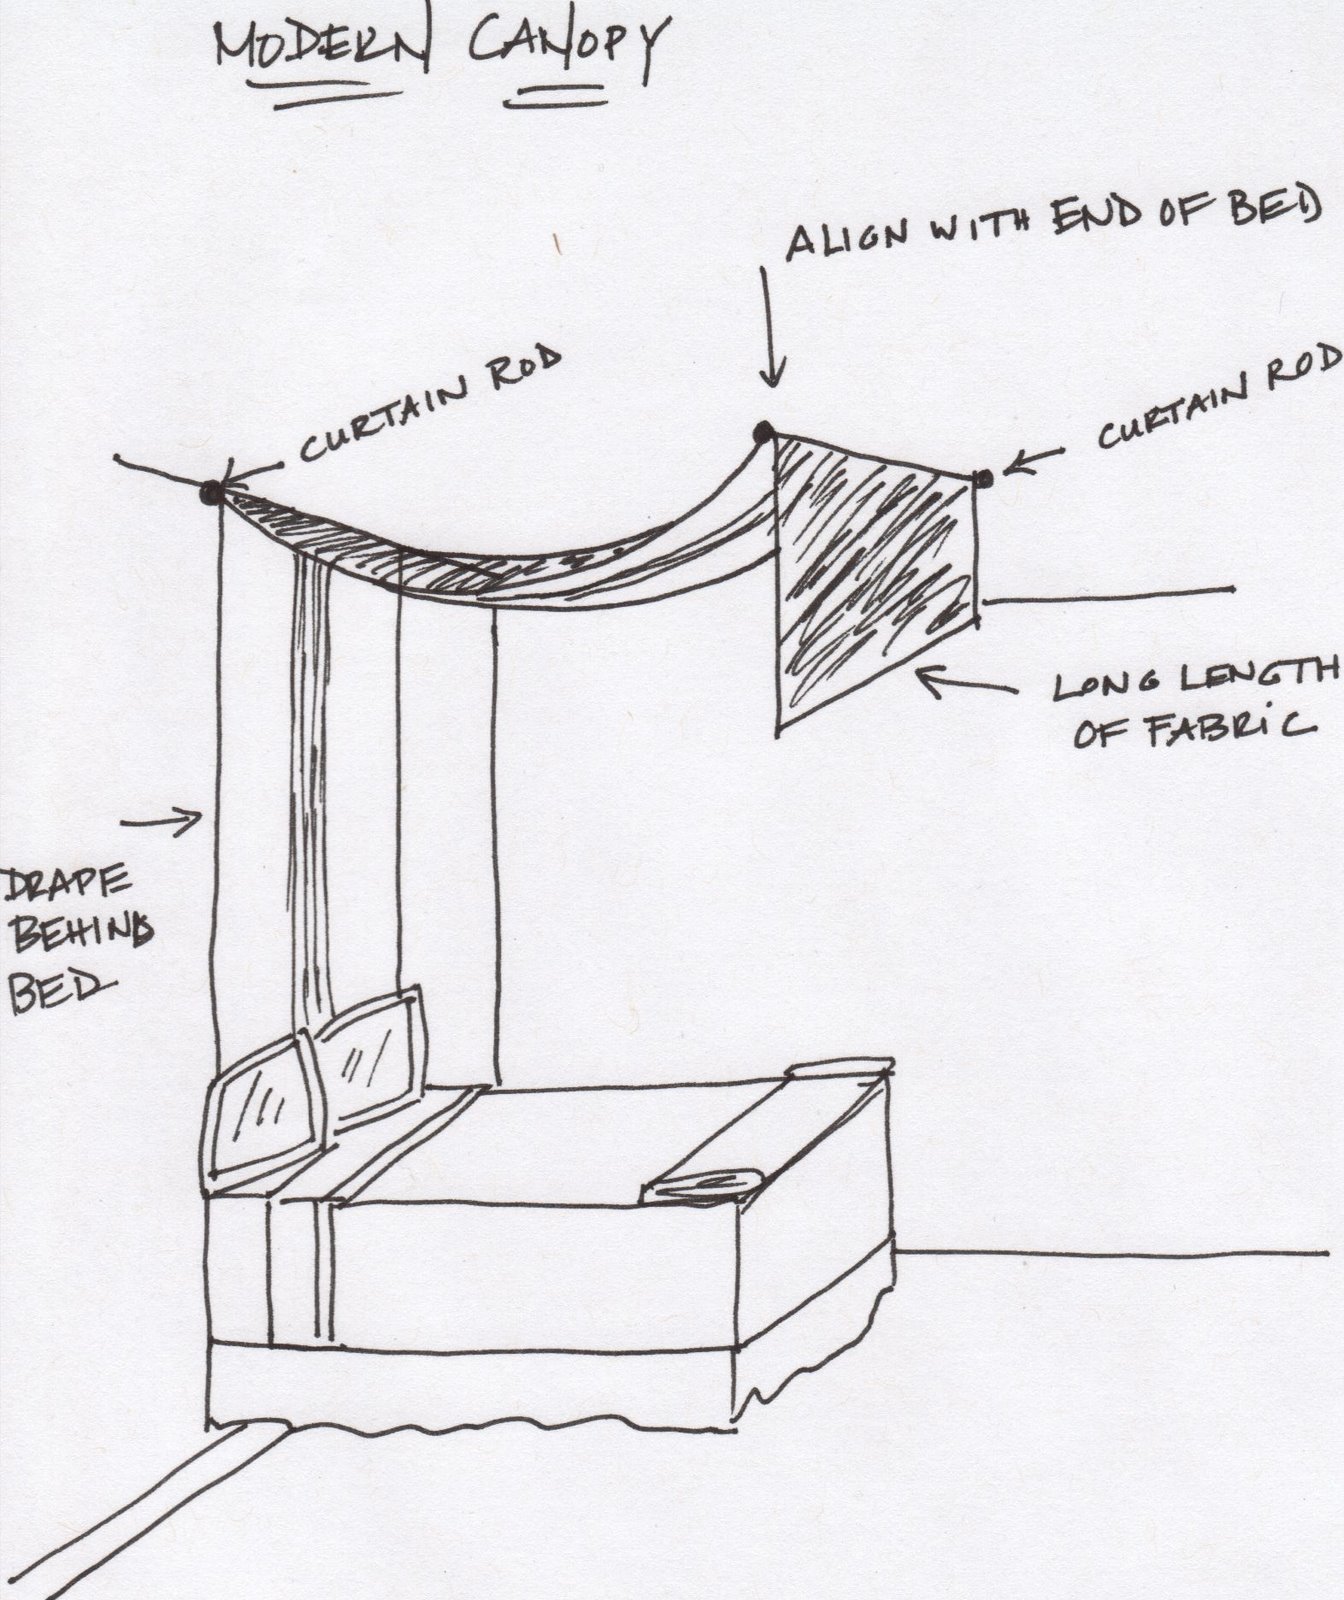 MODERN CANOPY
ALIGN WITH END OF BED
CURTAIN ROD
CURTAIN ROD
LONG LENGTH
OF FABRIC
DRAPE
BEHIND
BED